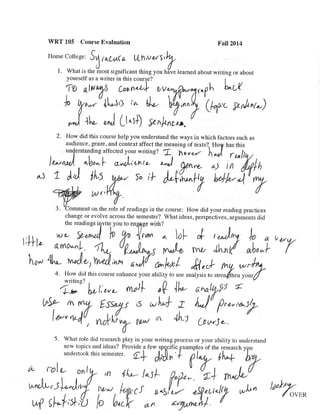 WRT 105 Course Evaluation Fall 2014
Home College: Syracuse University
1. What is the most significant thing you have learned about writing or about
yourself as a writer in this course?
To always connect every paragraph back
to your thesis in the beginning (topic sentence)
and the end (last) sentences.
2. How did this course help you understand the ways in which factors such as
audience, genre, and context affect the meaning of texts? How has this
understanding affected your writing? I never had really
learned about audience and genre as in depth
as I did this year so it definitely bettered my
writing.
3. Comment on the role of readings in the course: How did your reading practices
change or evolve across the semester? What ideas, perspectives, arguments did
the readings invite you to engage with?
We seemed to go from a lot of reading to a very
little amount. The Readings made me think about
how the mode, medium and context affect my writing
4. How did this course enhance your ability to use analysis to strengthen your
writing?
I believe most of the analysis I
use in my Essays is what I had previously
learned, nothing new in this course.
5. What role did research play in your writing process or your ability to understand
new topics and ideas? Provide a few specific examples of the research you
undertook this semester. It didn't play that big
a role only in the last paper. It made
understanding new topics easier especially when looking
up statistics to back an argument.
OVER